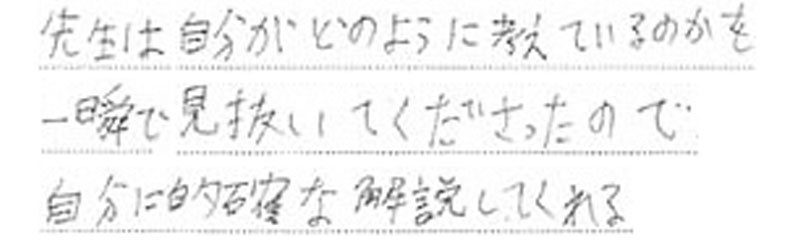 先生は自分がどのように考えているのかを
一瞬で見抜いてくださったので
自分に的確な解説してくれる